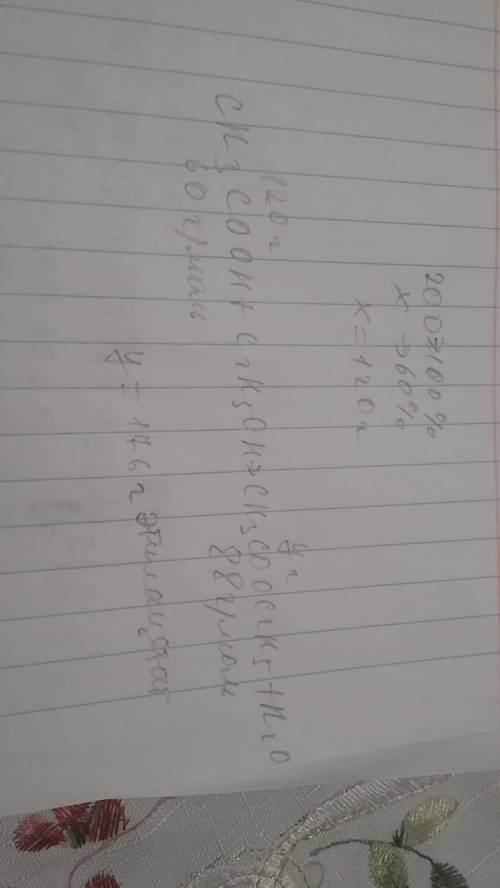 200→100%
x→60%
x=120г
120г yг
CH3COOH+C2H5OH→CH3COOC2H5+H2O
60г/моль 88г/моль
y=176г этилацетат